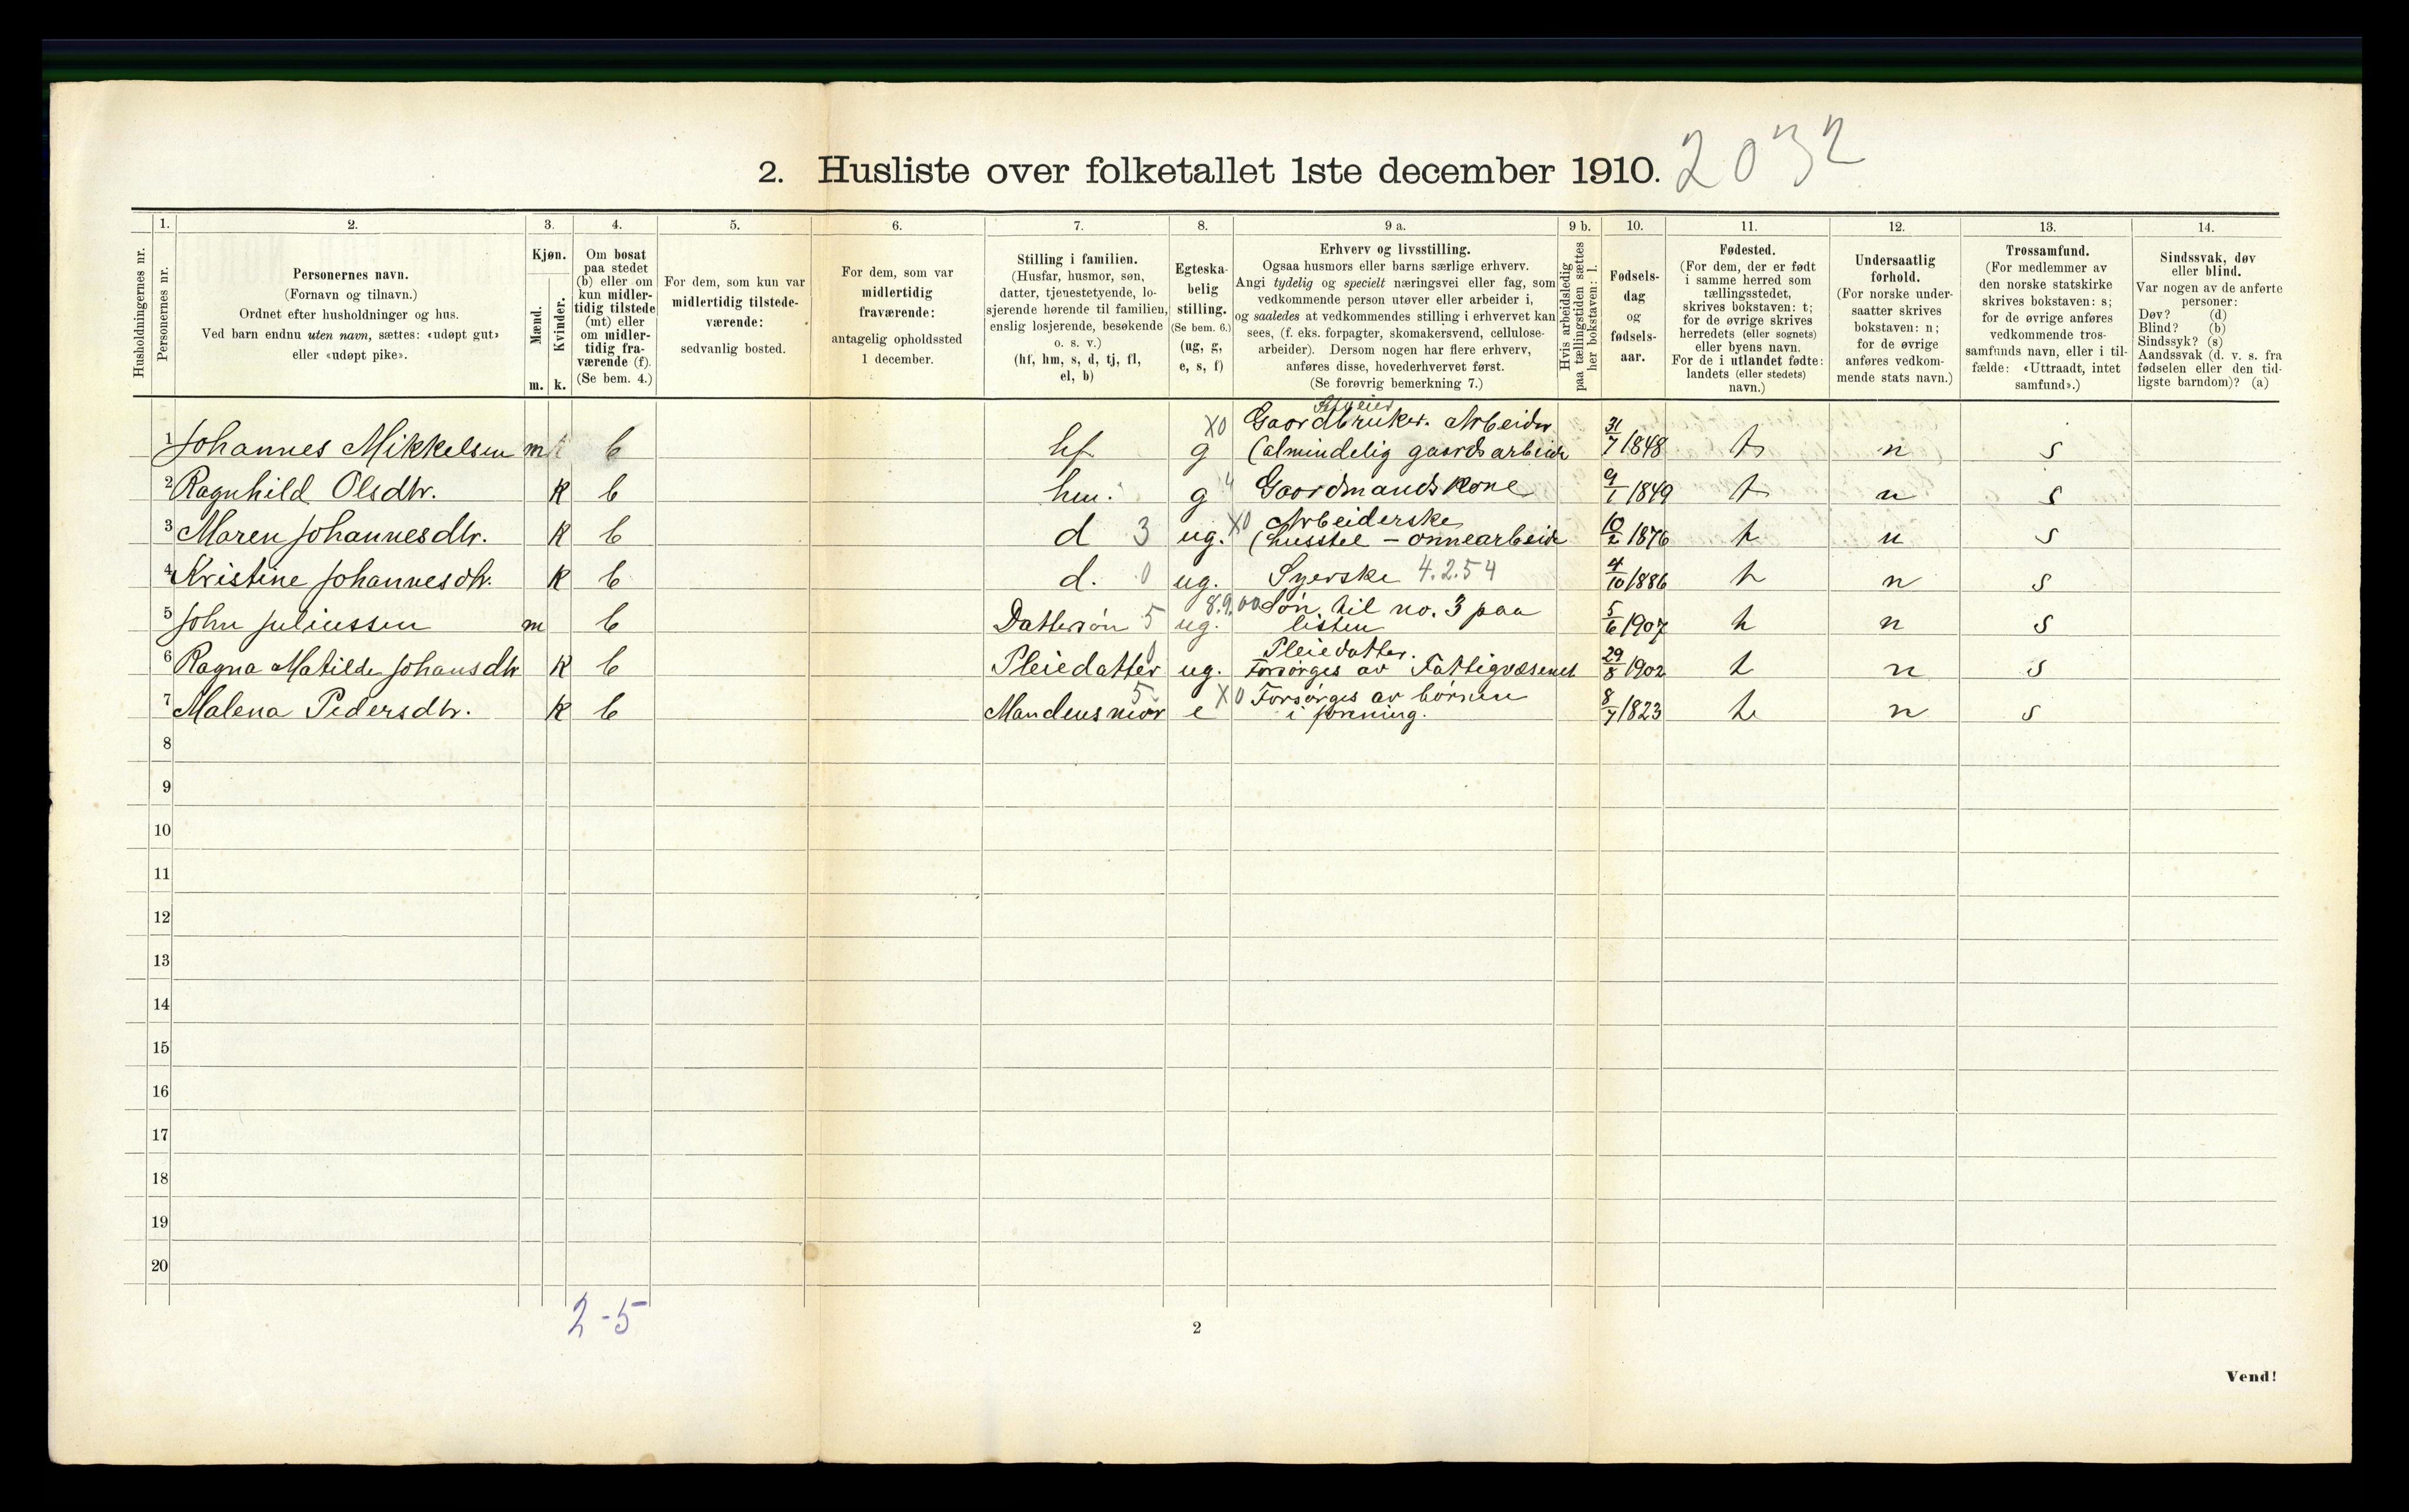 2. Husliste over folketallet 1ste december 1910. 2032
Husholdningernes nr.
1. Personernes nr.
2. Personernes navn.
(Fornavn og tilnavn.)
Ordnet efter husholdninger og hus.
Ved barn endnu uten navn, sættes: «udøpt gut»
eller «udøpt pike».
3. Kjøn.
Mænd. Kvinder.
m. k.
4. Om bosat
paa stedet
(b) eller om
kun midler-
tidig tilstede
(mt) eller
om midler-
tidig fra-
værende (f).
(Se bem. 4.)
5. For dem, som kun var
midlertidig tilstede-
værende:
sedvanlig bosted.
6. For dem, som var
midlertidig
fraværende:
antagelig opholdssted
1 december.
7. Stilling i familien.
(Husfar, husmor, søn,
datter, tjenestetyende, lo-
sjerende hørende til familien,
enslig losjerende, besøkende
o. s. v.)
(hf, hm, s, d, tj, fl,
el, b)
8. Egteska-
belig
stilling.
(Se bem. 6.)
(ug, g,
e, s, f)
9 a. Erhverv og livsstilling.
Ogsaa husmors eller barns særlige erhverv.
Angi tydelig og specielt næringsvei eller fag, som
vedkommende person utøver eller arbeider i,
og saaledes at vedkommendes stilling i erhvervet kan
sees, (f. eks. forpagter, skomakersvend, cellulose-
arbeider). Dersom nogen har flere erhverv,
anføres disse, hovederhvervet først.
(Se forøvrig bemerkning 7.)
9 b. Hvis arbeidsledig
paa tællingstiden sættes
her bokstaven: l.
10. Fødsels-
dag
og
fødsels-
aar.
11. Fødested.
(For dem, der er født
i samme herred som
tællingsstedet,
skrives bokstaven: t;
for de øvrige skrives
herredets (eller sognets)
eller byens navn.
For de i utlandet fødte:
landets (eller stedets)
navn.)
12. Undersaatlig
forhold.
(For norske under-
saatter skrives
bokstaven: n;
for de øvrige
anføres vedkom-
mende stats navn.)
13. Trossamfund.
(For medlemmer av
den norske statskirke
skrives bokstaven: s;
for de øvrige anføres
vedkommende tros-
samfunds navn, eller i til-
fælde: «Uttraadt, intet
samfund».)
14. Sindssvak, døv
eller blind.
Var nogen av de anførte
personer:
Døv? (d)
Blind? (b)
Sindssyk? (s)
Aandssvak (d. v. s. fra
fødselen eller den tid-
ligste barndom)? (a)
Selveier
X0 Gaardbruker. Arbeider
1 Johannes Mikkelsen m b hf g (almindelig gaardsarbeide 31/7 1848 t n s
2 Ragnhild Olsdtr. k b hm. g 4 Gaardmandskone 9/1 1849 t n s
X0 Arbeiderske
3 Maren Johannesdtr. k b d 3 ug. (husstel - onnearbeide 10/2 1876 t n s
4 Kristine Johannesdtr. k b d. 0 ug. Syerske 4.2.54 4/10 1886 t n s
8.9.00 Søn til no. 3 paa
5 John Juliussen m b Dattersøn 5 ug. listen 5/6 1907 t n s
Pleiedatter.
6 Ragna Matilde Johansdtr k b Pleiedatter 0 ug. Forsørges av Fattigvæsenet 29/8 1902 t n s
5 X0 Forsørges av børnene
7 Malena Pedersdtr. k b Mandens mor e i forening. 8/7 1823 t n s
8
9
10
11
12
13
14
15
16
17
18
19
20
2-5
2
Vend!